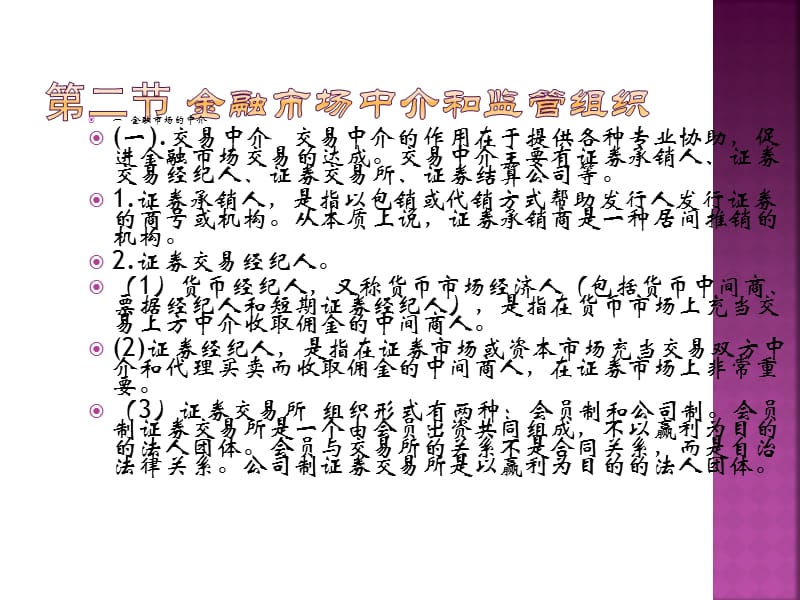 第二节 金融市场中介和监管组织
一 金融市场的中介
(一).交易中介 交易中介的作用在于提供各种专业协助，促
进金融市场交易的达成。交易中介主要有证券承销人、证券
交易经纪人、证券交易所、证券结算公司等。
1.证券承销人，是指以包销或代销方式帮助发行人发行证券
的商号或机构。从本质上说，证券承销商是一种居间推销的
机构。
2.证券交易经纪人。
（1）货币经纪人，又称货币市场经济人（包括货币中间商、
票据经纪人和短期证券经纪人），是指在货币市场上充当交
易上方中介收取佣金的中间商人。
(2)证券经纪人，是指在证券市场或资本市场充当交易双方中
介和代理买卖而收取佣金的中间商人，在证券市场上非常重
要。
（3）证券交易所 组织形式有两种：会员制和公司制。会员
制证券交易所是一个由会员出资共同组成，不以赢利为目的
的法人团体。会员与交易所的关系不是合同关系，而是自治
法律关系。公司制证券交易所是以赢利为目的的法人团体。